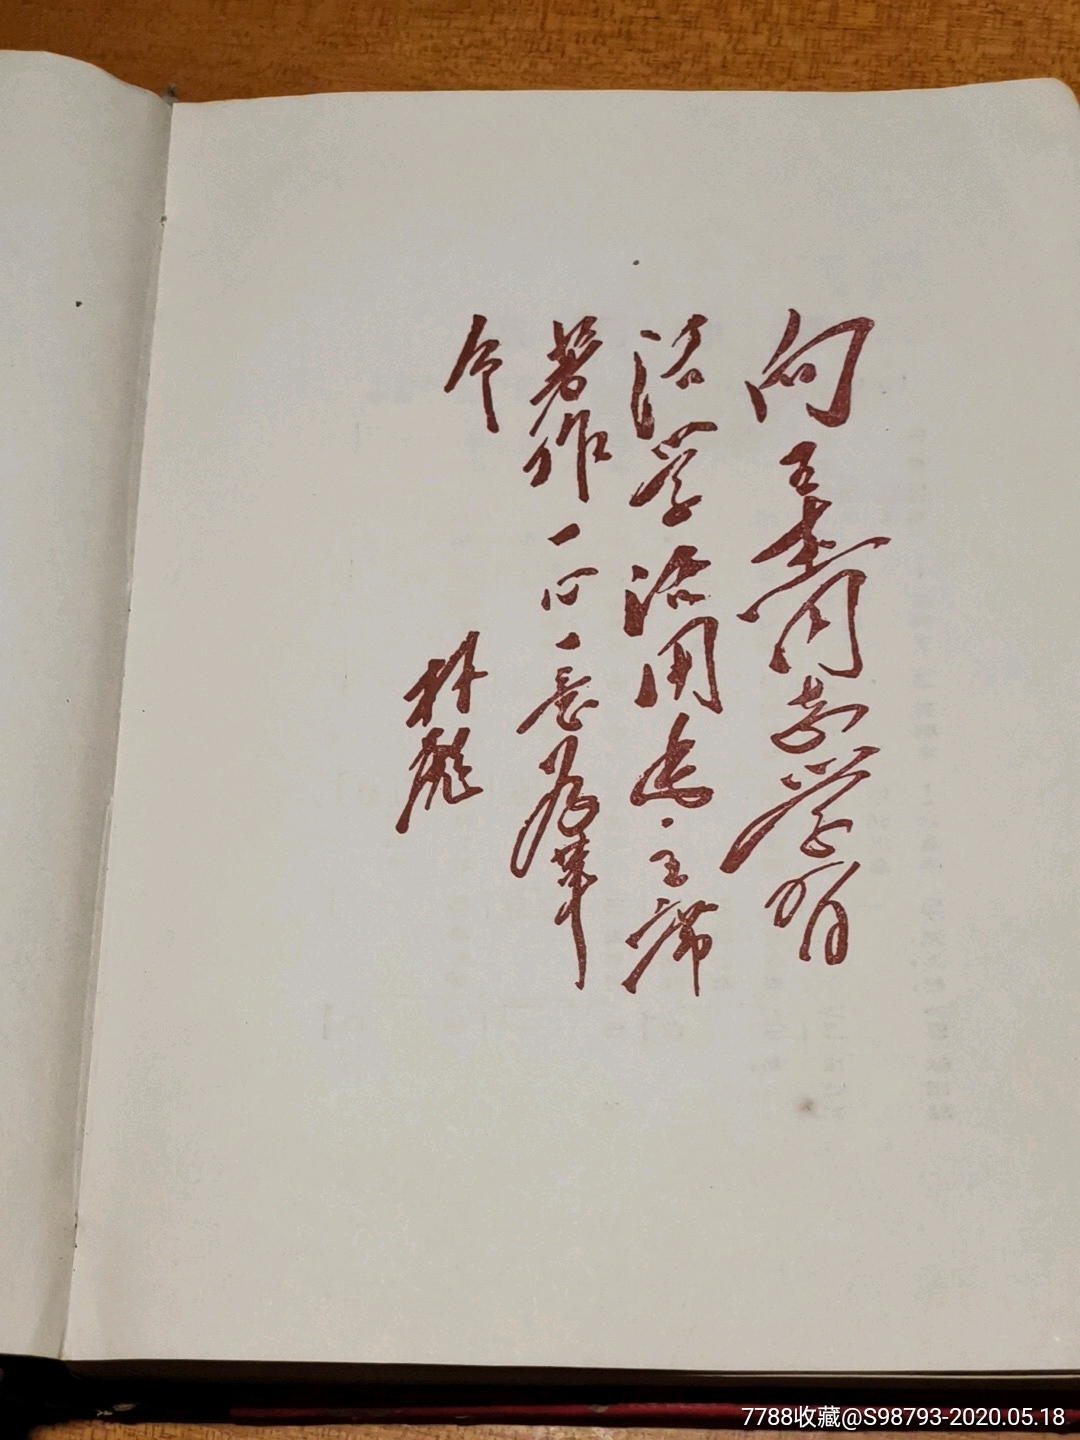 向王杰同志学习
活学活用毛主席
著作一心一意为革
命
林彪
7788收藏@S98793-2020.05.18